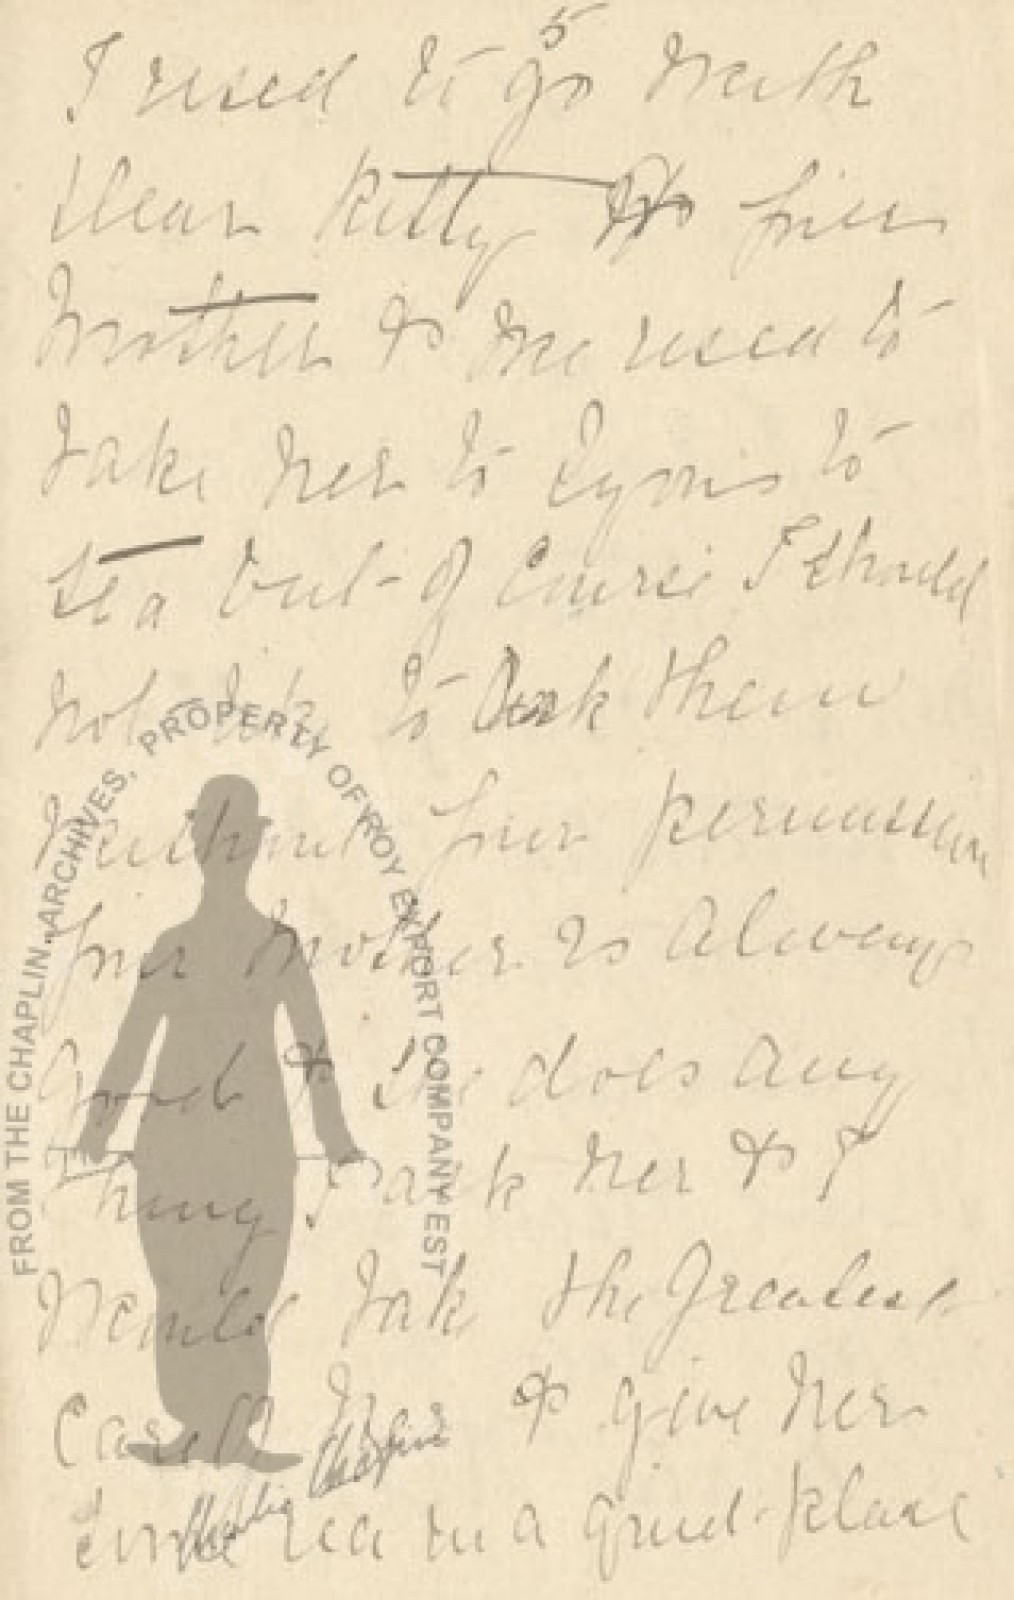 5
I used to go with
dear Kitty & her
Mother & we used to
take her to Lyons to
tea but of Course I should
not like to ask them
without her permission
her Mother is always
good & she does any
thing I ask her & I
would take the greatest
care of her & give her
some tea in a quiet place
FROM THE CHAPLIN ARCHIVES, PROPERTY OF ROY EXPORT COMPANY EST